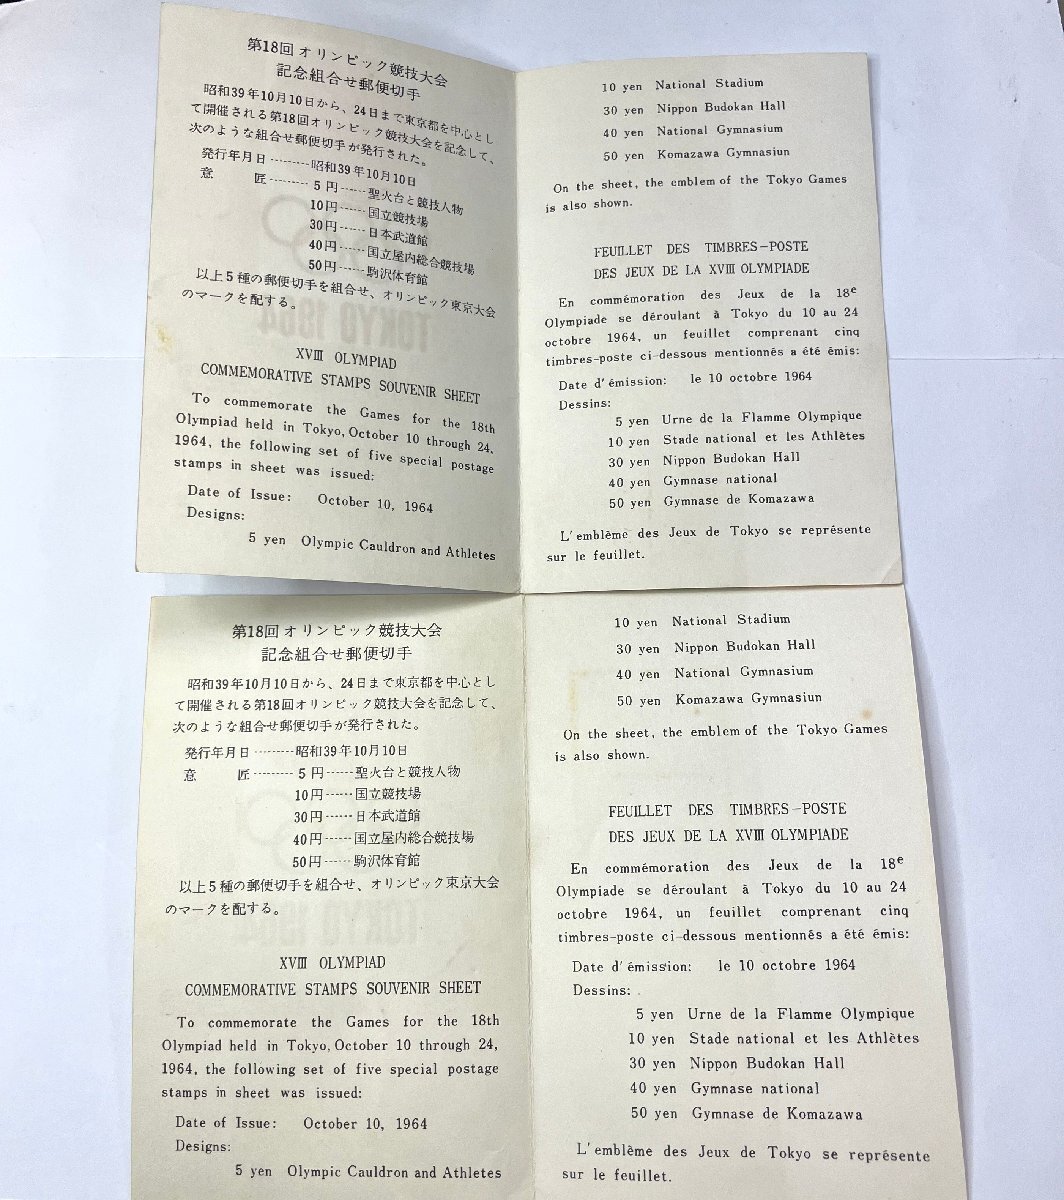 第18回オリンピック競技大会
記念組合せ郵便切手
昭和39年10月10日から、24日まで東京都を中心とし
て開催される第18回オリンピック競技大会を記念して、
次のような組合せ郵便切手が発行された。
発行年月日………昭和39年10月10日
意　　匠………5円……聖火台と競技人物
10円……国立競技場
30円……日本武道館
40円……国立屋内総合競技場
50円……駒沢体育館
以上5種の郵便切手を組合せ、オリンピック東京大会
のマークを配する。
XVIII OLYMPIAD
COMMEMORATIVE STAMPS SOUVENIR SHEET
To commemorate the Games for the 18th
Olympiad held in Tokyo, October 10 through 24,
1964, the following set of five special postage
stamps in sheet was issued:
Date of Issue: October 10, 1964
Designs:
5 yen Olympic Cauldron and Athletes
10 yen National Stadium
30 yen Nippon Budokan Hall
40 yen National Gymnasium
50 yen Komazawa Gymnasiun
On the sheet, the emblem of the Tokyo Games
is also shown.
FEUILLET DES TIMBRES-POSTE
DES JEUX DE LA XVIII OLYMPIADE
En commémoration des Jeux de la 18e
Olympiade se déroulant à Tokyo du 10 au 24
octobre 1964, un feuillet comprenant cinq
timbres-poste ci-dessous mentionnés a été émis:
Date d'émission: le 10 octobre 1964
Dessins:
5 yen Urne de la Flamme Olympique
10 yen Stade national et les Athlètes
30 yen Nippon Budokan Hall
40 yen Gymnase national
50 yen Gymnase de Komazawa
L'emblème des Jeux de Tokyo se représente
sur le feuillet.
第18回オリンピック競技大会
記念組合せ郵便切手
昭和39年10月10日から、24日まで東京都を中心とし
て開催される第18回オリンピック競技大会を記念して、
次のような組合せ郵便切手が発行された。
発行年月日………昭和39年10月10日
意　　匠………5円……聖火台と競技人物
10円……国立競技場
30円……日本武道館
40円……国立屋内総合競技場
50円……駒沢体育館
以上5種の郵便切手を組合せ、オリンピック東京大会
のマークを配する。
XVIII OLYMPIAD
COMMEMORATIVE STAMPS SOUVENIR SHEET
To commemorate the Games for the 18th
Olympiad held in Tokyo, October 10 through 24,
1964, the following set of five special postage
stamps in sheet was issued:
Date of Issue: October 10, 1964
Designs:
5 yen Olympic Cauldron and Athletes
10 yen National Stadium
30 yen Nippon Budokan Hall
40 yen National Gymnasium
50 yen Komazawa Gymnasiun
On the sheet, the emblem of the Tokyo Games
is also shown.
FEUILLET DES TIMBRES-POSTE
DES JEUX DE LA XVIII OLYMPIADE
En commémoration des Jeux de la 18e
Olympiade se déroulant à Tokyo du 10 au 24
octobre 1964, un feuillet comprenant cinq
timbres-poste ci-dessous mentionnés a été émis:
Date d'émission: le 10 octobre 1964
Dessins:
5 yen Urne de la Flamme Olympique
10 yen Stade national et les Athlètes
30 yen Nippon Budokan Hall
40 yen Gymnase national
50 yen Gymnase de Komazawa
L'emblème des Jeux de Tokyo se représente
sur le feuillet.